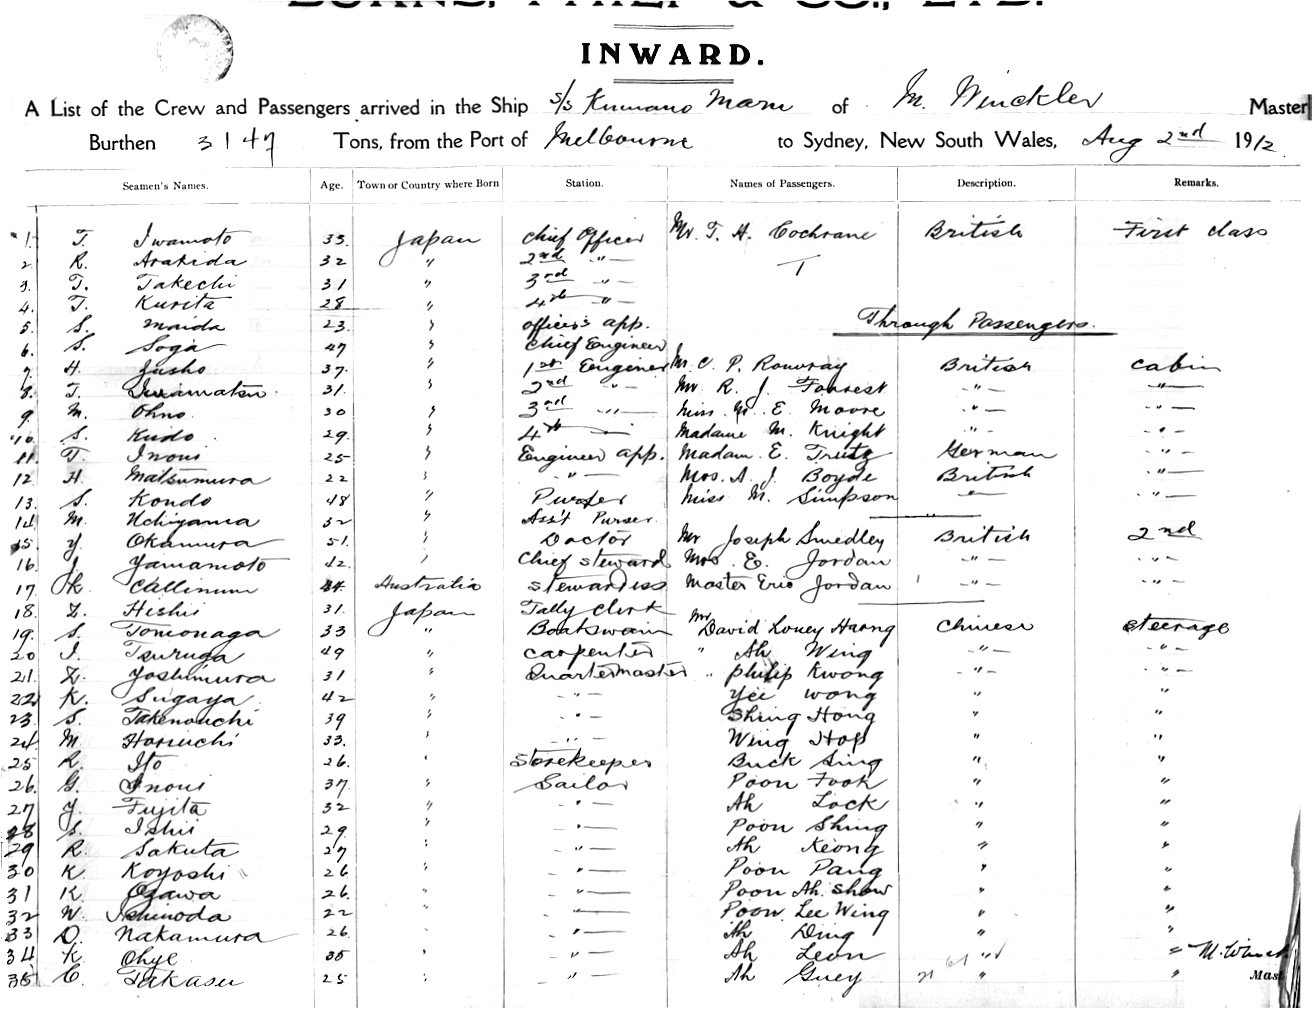 BURNS, PHILP & CO., LTD.
INWARD.
A List of the Crew and Passengers arrived in the Ship s/s Kumano Maru of M. Winckler Master
Burthen 3147 Tons, from the Port of Melbourne to Sydney, New South Wales, Aug 2nd 1912
Seamen's Names. Age. Town or Country where Born Station. Names of Passengers. Description. Remarks.
1. T. Iwamoto 33. Japan Chief Officer Mr. T. H. Cochrane British First class
2. R. Arakida 32 " 2nd "
3. T. Takechi 31 " 3rd "
4. T. Kurita 28 " 4th "
5. S. Maida 23. " officer's app. Through Passengers.
6. S. Soga 47 " Chief Engineer
7. H. Jusho 37. " 1st Engineer Mr. C. P. Rouvray British cabin
8. T. Iwamatsu 31. " 2nd " Mr. R. J. Forrest " "
9. M. Ohno 30 " 3rd " Miss M. E. Moore " "
10. S. Kudo 29. " 4th " Madame M. Knight " "
11. T. Inoui 25 " Engineer app. Madam E. Trutz German "
12 H. Matsumura 22 " " Mrs. A. J. Boyde British "
13. S. Kondo 48 " Purser Miss M. Simpson " "
14 M. Uchiyama 32 " Ass't Purser
15. Y. Okamura 51. " Doctor Mr Joseph Smedley British 2nd
16. J. Yamamoto 42. " Chief steward Mrs. E. Jordan " "
17. K. Callinum 44. Australia stewardess Master Eric Jordan " "
18. Z. Hishii 31. Japan Tally Clerk
19. S. Tomonaga 33 " Boatswain Mr David Louey Harng Chinese steerage
20 I. Tsuruga 49 " Carpenter " Ah Wing " "
21. Z. Yoshimura 31 " Quartermaster " Philip Kwong " "
22. K. Sugaya 42 " " Yee Wong " "
23. S. Takenouchi 39 " " Shing Hong " "
24 M. Horiuchi 33. " " Wing Hop " "
25 R. Ito 26. " Storekeeper Buck Sing " "
26. G. Inoui 37. " Sailor Poon Fook " "
27 Y. Fujita 32 " " Ah Lock " "
28 S. Ishii 29. " " Poon Shing " "
29 R. Sakuta 27 " " Ah Keong " "
30 K. Koyoshi 26 " " Poon Pang " "
31 K. Ozawa 26. " " Poon Ah. Show " "
32 W. Ishinoda 22 " " Poon Lee Wing " "
33 D. Nakamura 26. " " Ah Ding " "
34 K. Ohye 35 " " Ah Leon " " M. Winck
35 C. Takasu 25 " " Ah Guey " " Mast